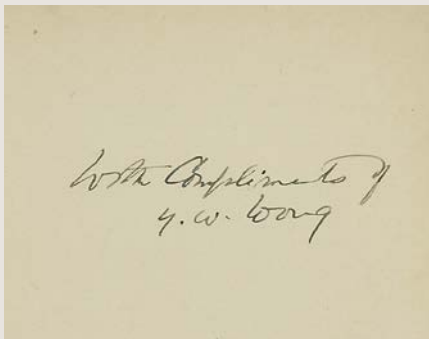 With Compliments of
Y. W. Wong